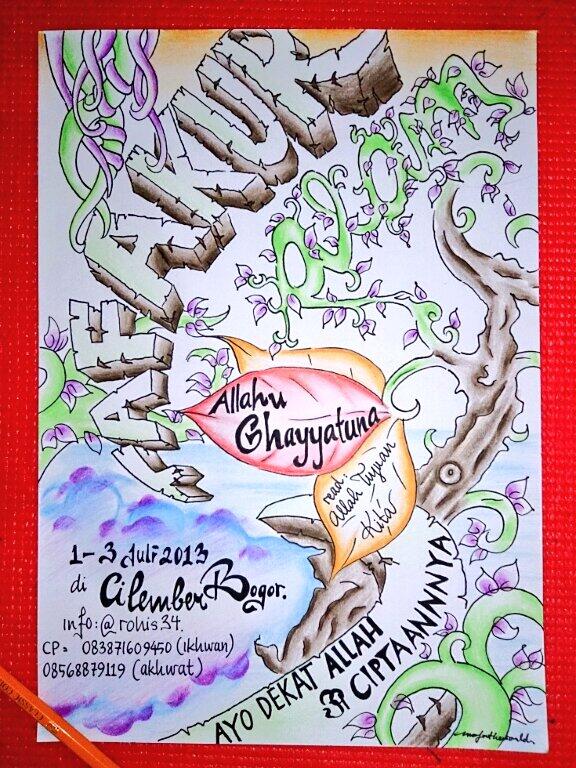 TAFAKUR
Allahu
Ghayyatuna
read:
Allah Tujuan
Kita!
1-3 Juli 2013
di Cilember Bogor.
info:@rohis34.
CP = 083871609450 (Ikhwan)
08568879119 (akhwat)
AYO DEKAT ALLAH
CIPTAANNNYA